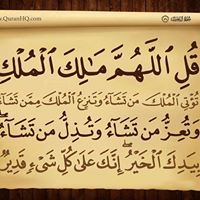 www.QuranHQ.com
قُلِ اللَّهُمَّ مَالِكَ الْمُلْكِ
تُؤْتِي الْمُلْكَ مَن تَشَاءُ وَتَنزِعُ الْمُلْكَ مِمَّن تَشَاءُ
وَتُعِزُّ مَن تَشَاءُ وَتُذِلُّ مَن تَشَاءُ
بِيَدِكَ الْخَيْرُ إِنَّكَ عَلَىٰ كُلِّ شَيْءٍ قَدِيرٌ